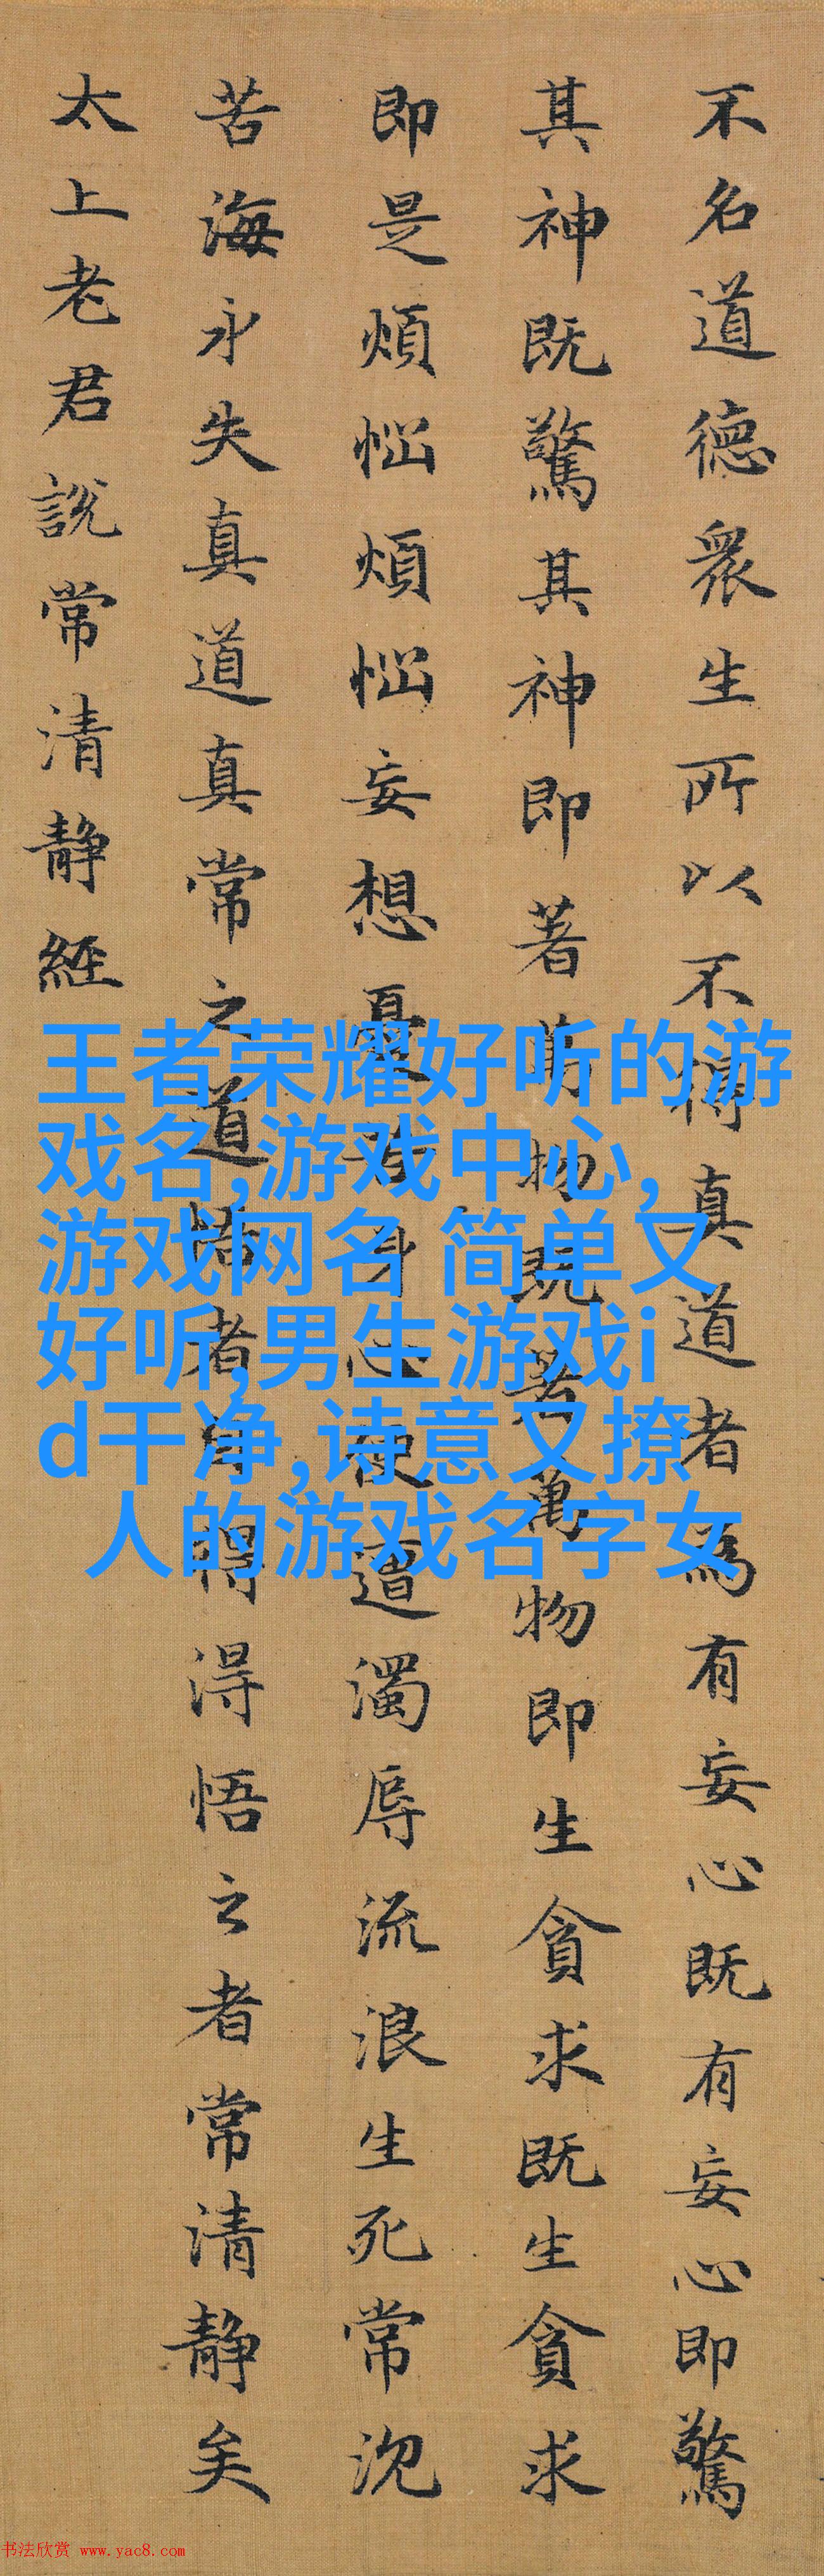 不名道德衆生所以不得真道者為有妄心既有妄心即驚
其神既驚其神即著萬物既著萬物即生貪求既生貪求
即是煩惱煩惱妄想憂苦身心便遭濁辱流浪生死常沉
苦海永失真道真常之道悟者自得得悟之者常清靜矣
太上老君說常清靜經
王者荣耀好听的游
戏名,游戏中心,
游戏网名 简单又
好听,男生游戏i
d干净,诗意又撩
人的游戏名字女
书法欣赏 www.yac8.com